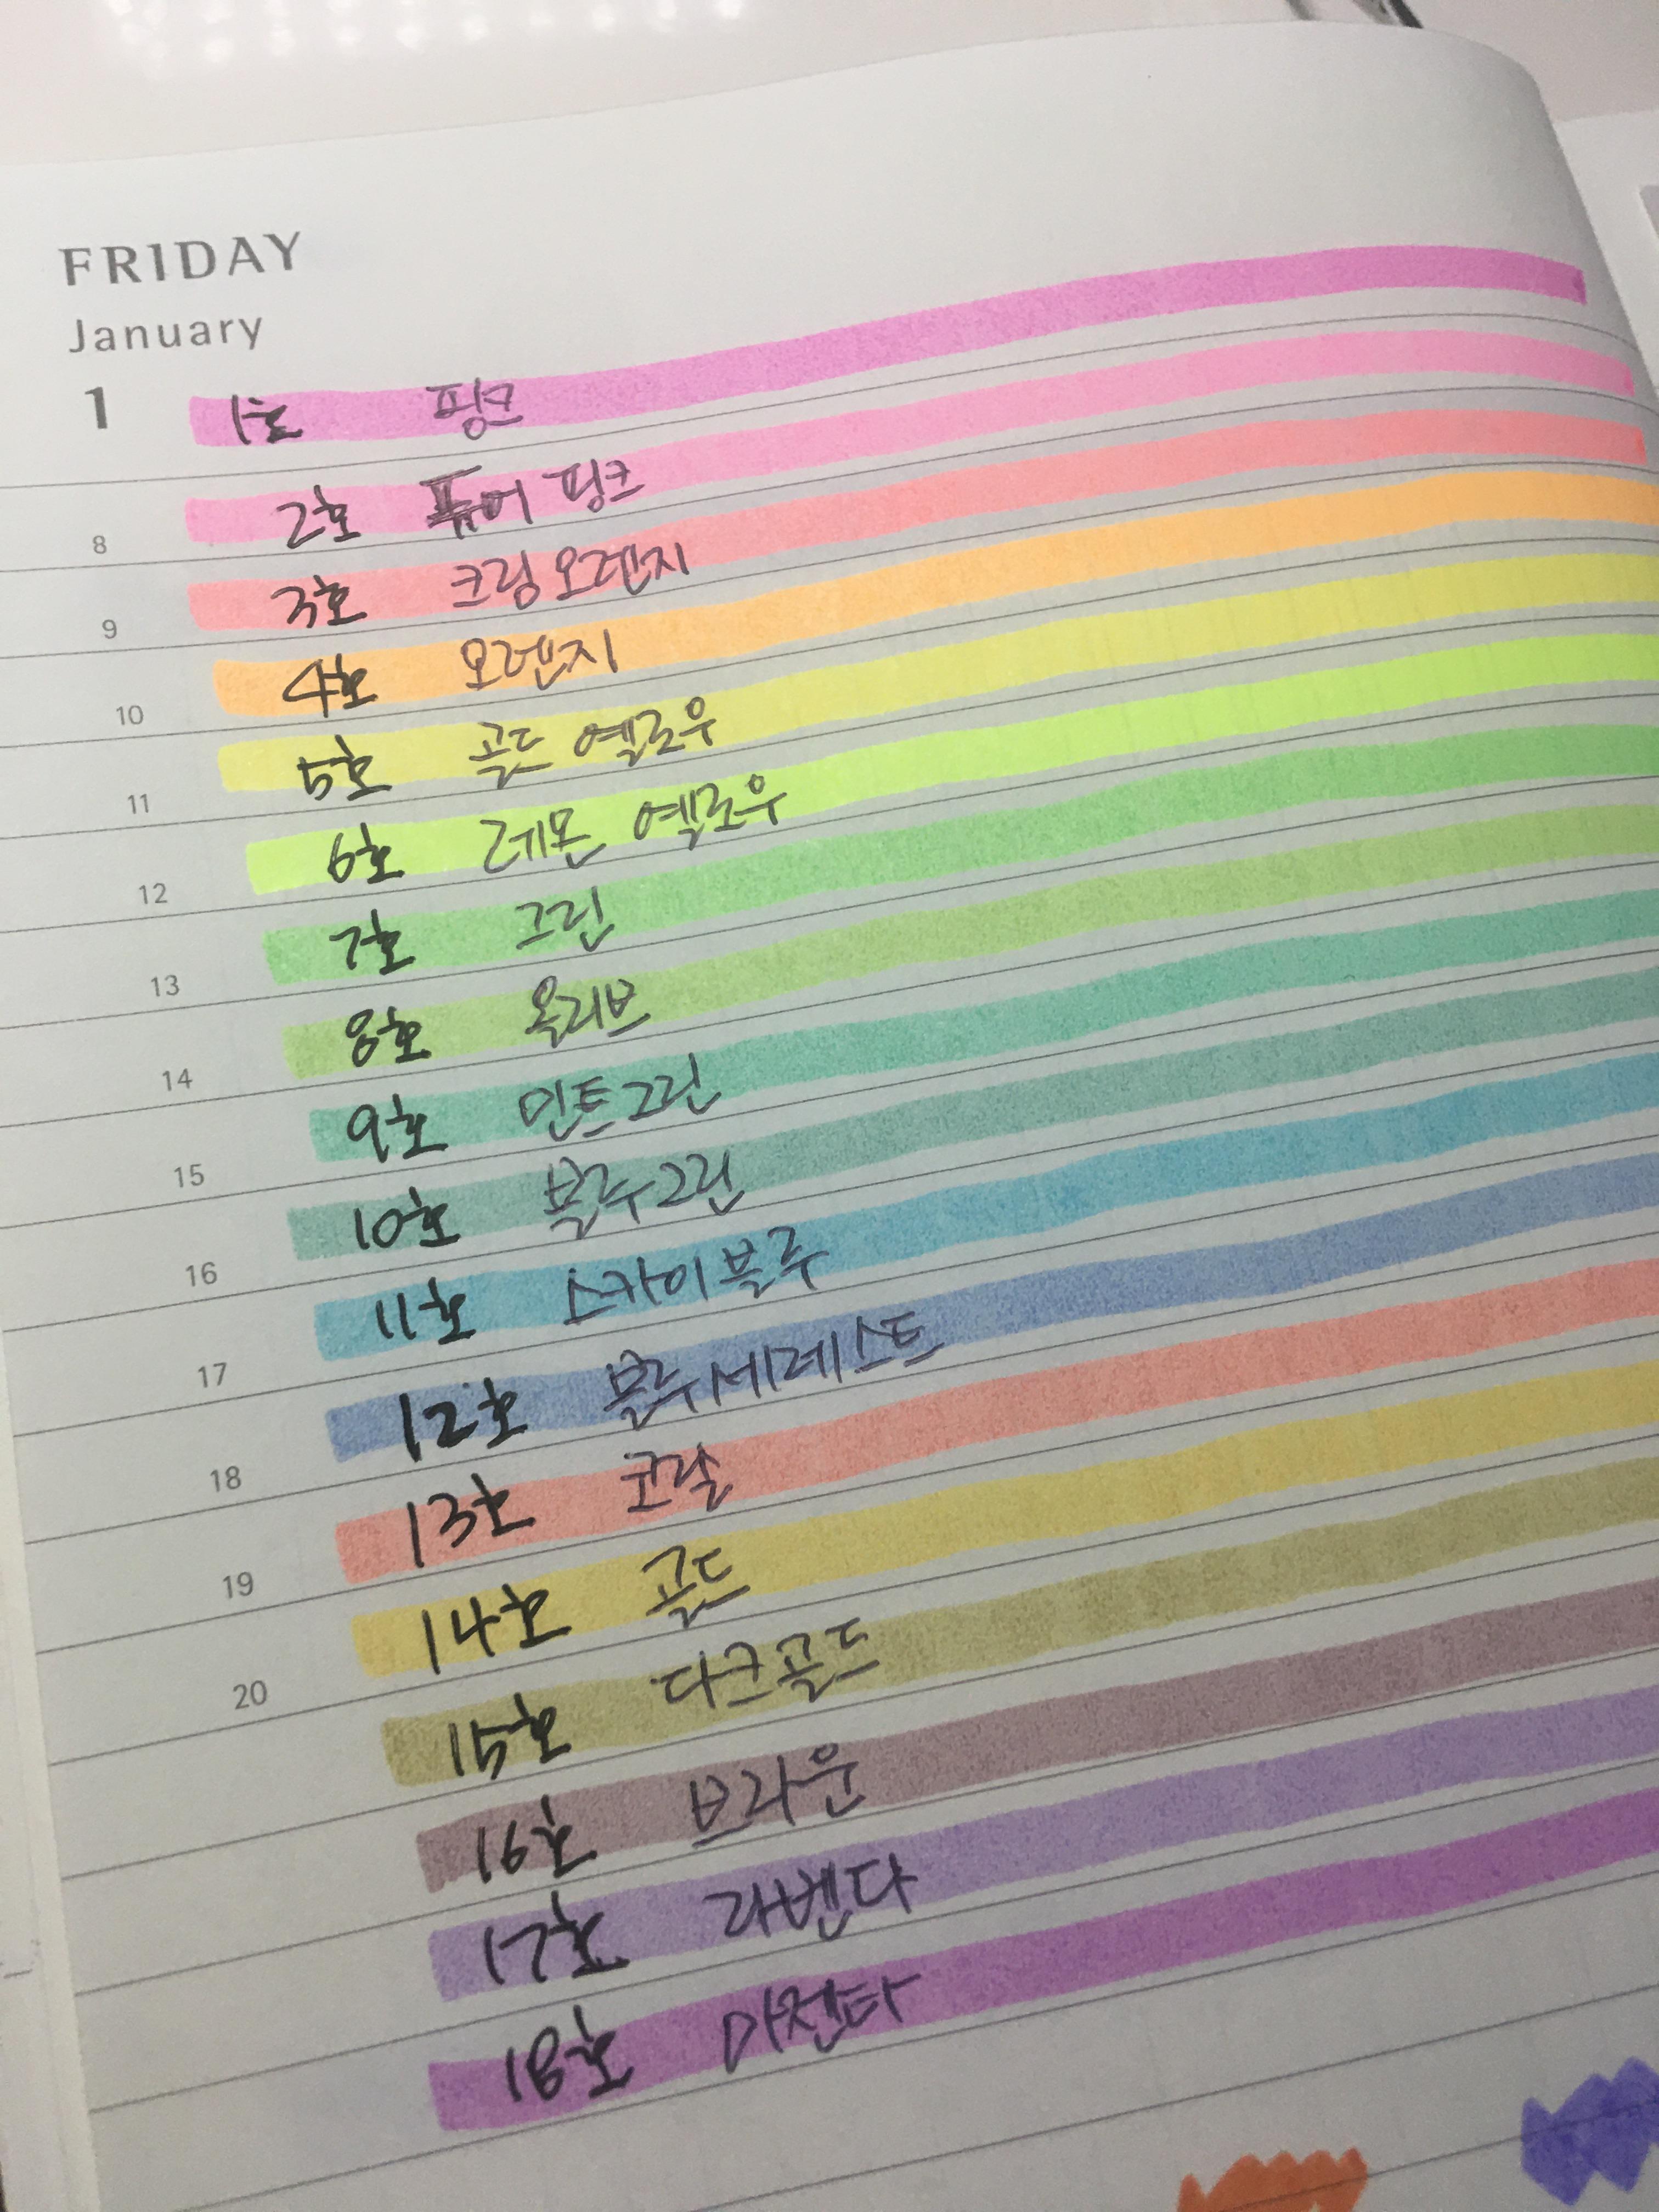 FRIDAY
January
1
1호 핑크
2호 퓨어 핑크
8
3호 크림오렌지
9
4호 오렌지
10
5호 골드 옐로우
11
6호 레몬 옐로우
12
7호 그린
13
8호 올리브
14
9호 민트그린
15
10호 블루그린
16
11호 스카이블루
17
12호 블루세레스트
18
13호 코랄
19
14호 골드
20
15호 다크골드
16호 브라운
17호 라벤다
18호 마젠타